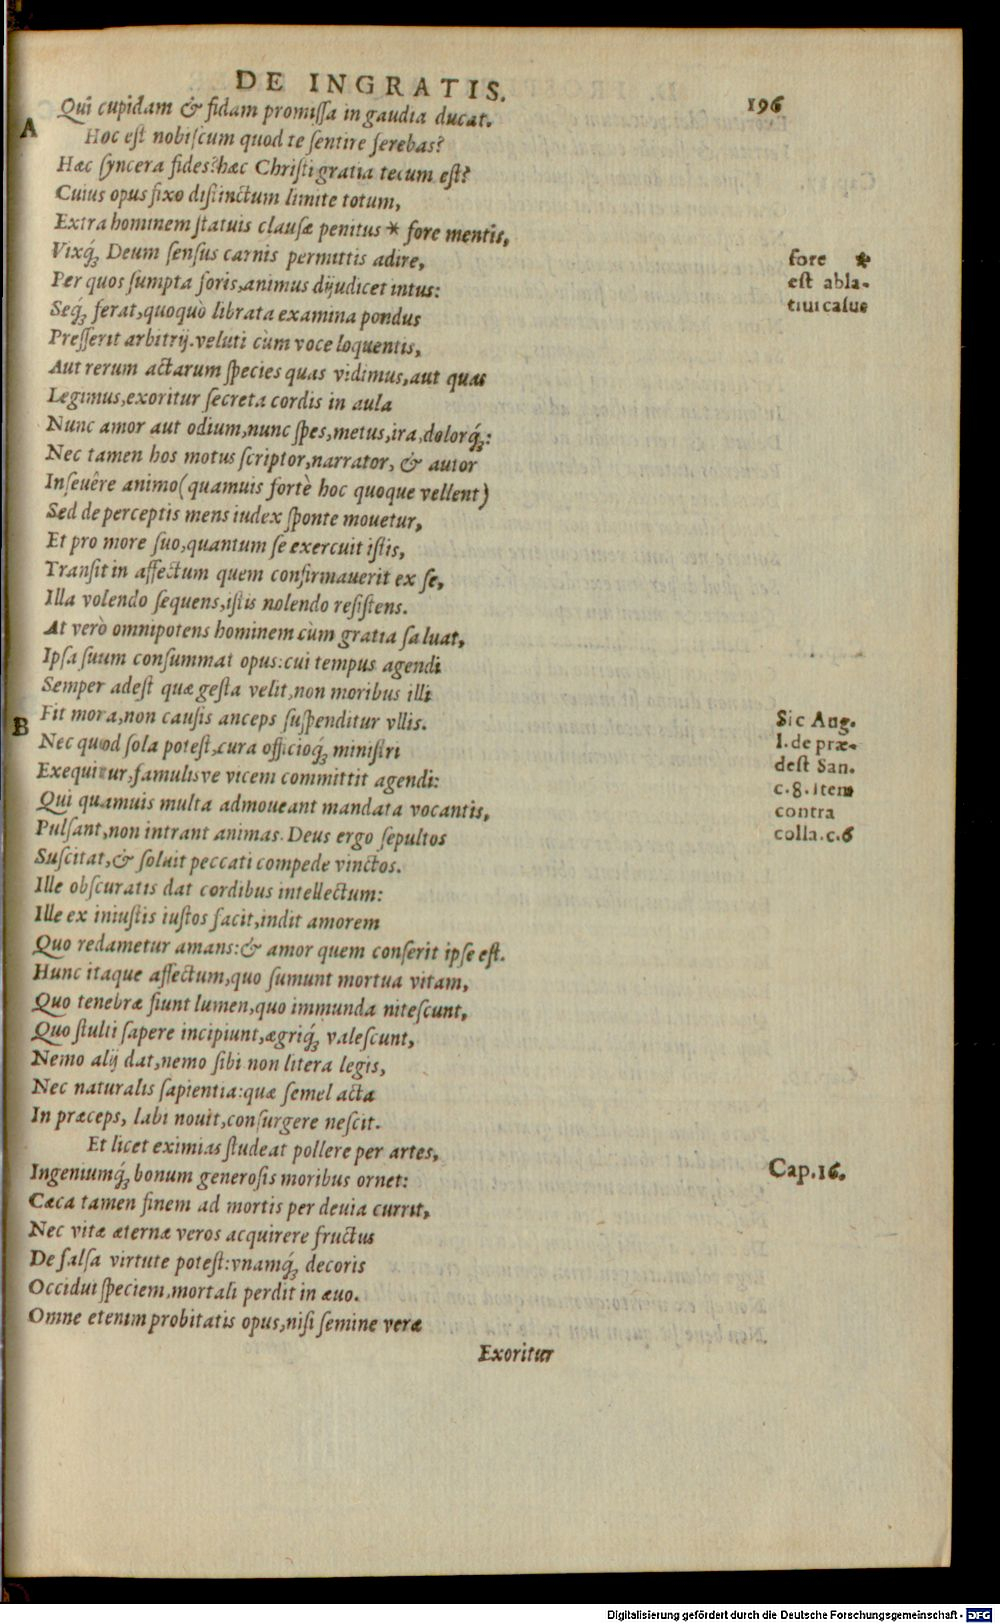 DE INGRATIS.
196
Qui cupidam & fidam promiſſa in gaudia ducat.
A
Hoc eſt nobiſcum quod te ſentire ferebas?
Hæc ſyncera fides? hæc Chriſti gratia tecum eſt?
Cuius opus fixo diſtinctum limite totum,
Extra hominem ſtatuis clauſæ penitus * fore mentis,
Vixq́; Deum ſenſus carnis permittis adire,
fore *
Per quos ſumpta foris, animus dijudicet intus:
eſt abla-
Seq́; ferat, quoquò librata examina pondus
tiui caſus
Preſſerit arbitrij. veluti cùm voce loquentis,
Aut rerum actarum ſpecies quas vidimus, aut quas
Legimus, exoritur ſecreta cordis in aula
Nunc amor aut odium, nunc ſpes, metus, ira, dolorq́;:
Nec tamen hos motus ſcriptor, narrator, & autor
Inſeuêre animo (quamuis fortè hoc quoque vellent)
Sed de perceptis mens iudex ſponte mouetur,
Et pro more ſuo, quantum ſe exercuit iſtis,
Tranſit in affectum quem confirmauerit ex ſe,
Illa volendo ſequens, iſtis nolendo reſiſtens.
At verò omnipotens hominem cùm gratia ſaluat,
Ipſa ſuum conſummat opus: cui tempus agendi
Semper adeſt quæ geſta velit, non moribus illi
B
Fit mora, non cauſis anceps ſuſpenditur vllis.
Sic Aug.
Nec quod ſola poteſt, cura officioq́; miniſtri
l. de præ-
Exequitur, famulisve vicem committit agendi:
deſt San.
Qui quamuis multa admoueant mandata vocantis,
c. 8. item
contra
Pulſant, non intrant animas. Deus ergo ſepultos
colla. c. 6
Suſcitat, & ſoluit peccati compede vinctos.
Ille obſcuratis dat cordibus intellectum:
Ille ex iniuſtis iuſtos facit, indit amorem
Quo redametur amans: & amor quem conſerit ipſe eſt.
Hunc itaque affectum, quo ſumunt mortua vitam,
Quo tenebræ fiunt lumen, quo immunda niteſcunt,
Quo ſtulti ſapere incipiunt, ægriq́; valeſcunt,
Nemo alij dat, nemo ſibi non litera legis,
Nec naturalis ſapientia: quæ ſemel acta
In præceps, labi nouit, conſurgere neſcit.
Et licet eximias ſtudeat pollere per artes,
Cap. 16.
Ingeniumq́; bonum generoſis moribus ornet:
Cæca tamen finem ad mortis per deuia currit,
Nec vitæ æternæ veros acquirere fructus
De falſa virtute poteſt: vnamq́; decoris
Occidui ſpeciem, mortali perdit in æuo.
Omne etenim probitatis opus, niſi ſemine veræ
Exoritur
Digitalisierung gefördert durch die Deutsche Forschungsgemeinschaft - DFG